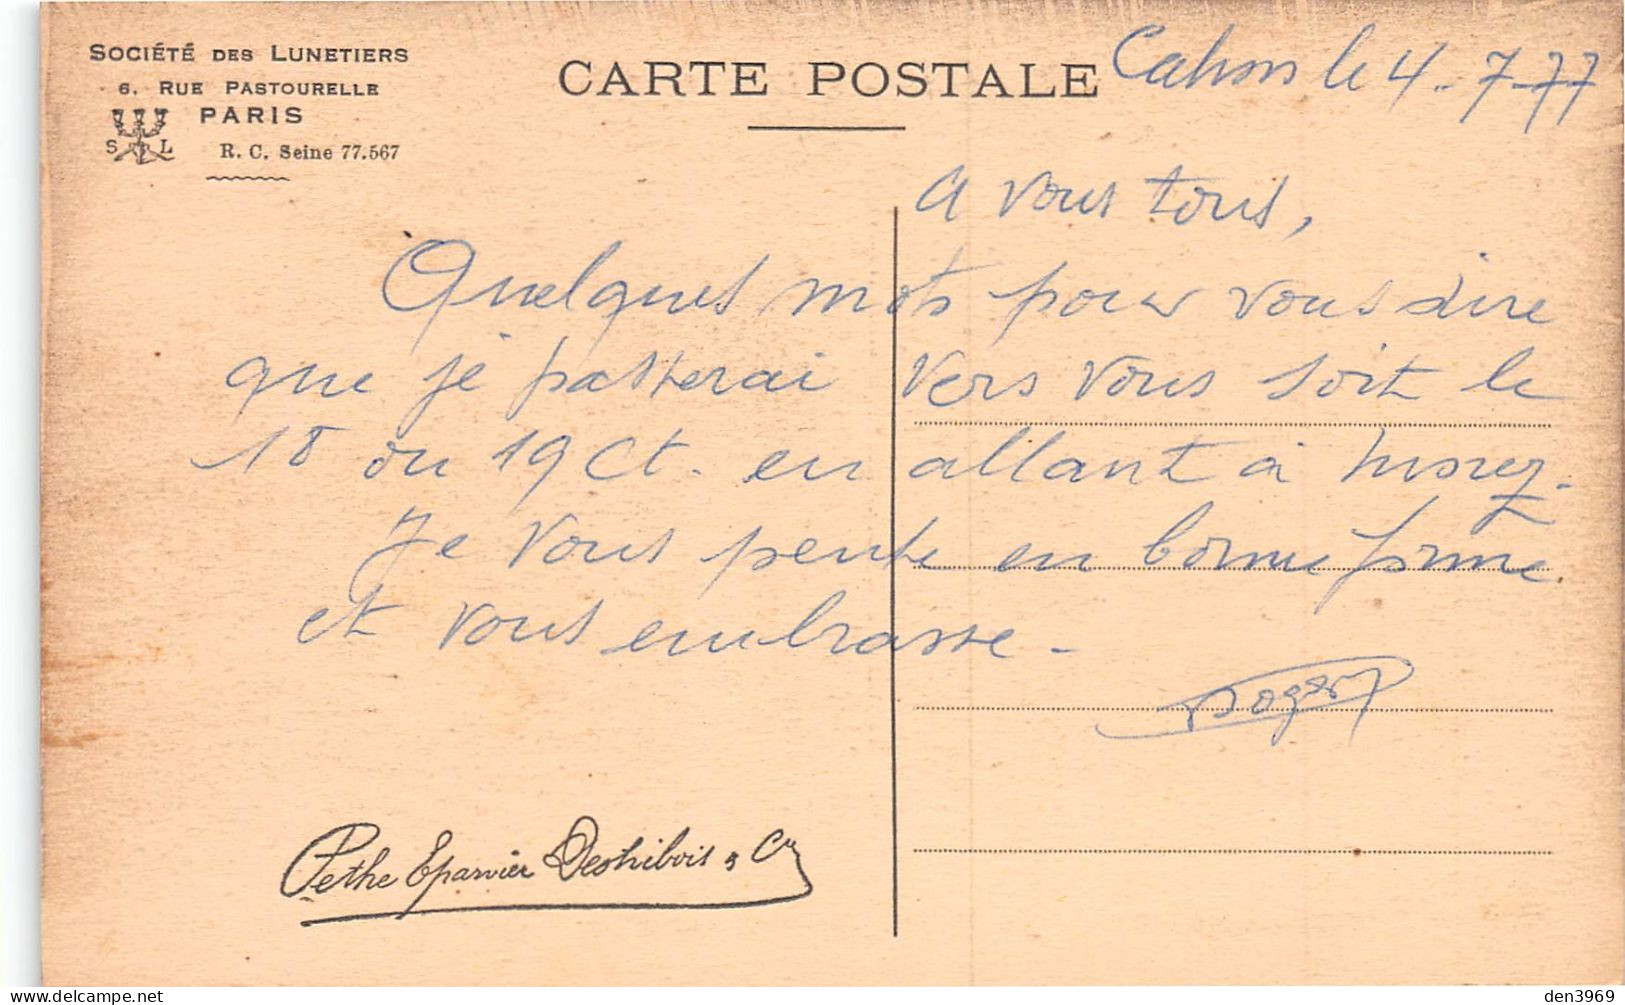 SOCIÉTÉ DES LUNETIERS
6, RUE PASTOURELLE
PARIS
S L
R. C. Seine 77.567
CARTE POSTALE
Cahors le 4-7-77
A vous tous,
Quelques mots pour vous dire
que je passerai vers vous soit le
18 ou 19 Ct. en allant à Morez.
Je vous pense en bonne forme
et vous embrasse.
Roger
Pethe Eparvier Deshibois & Cie
den3969